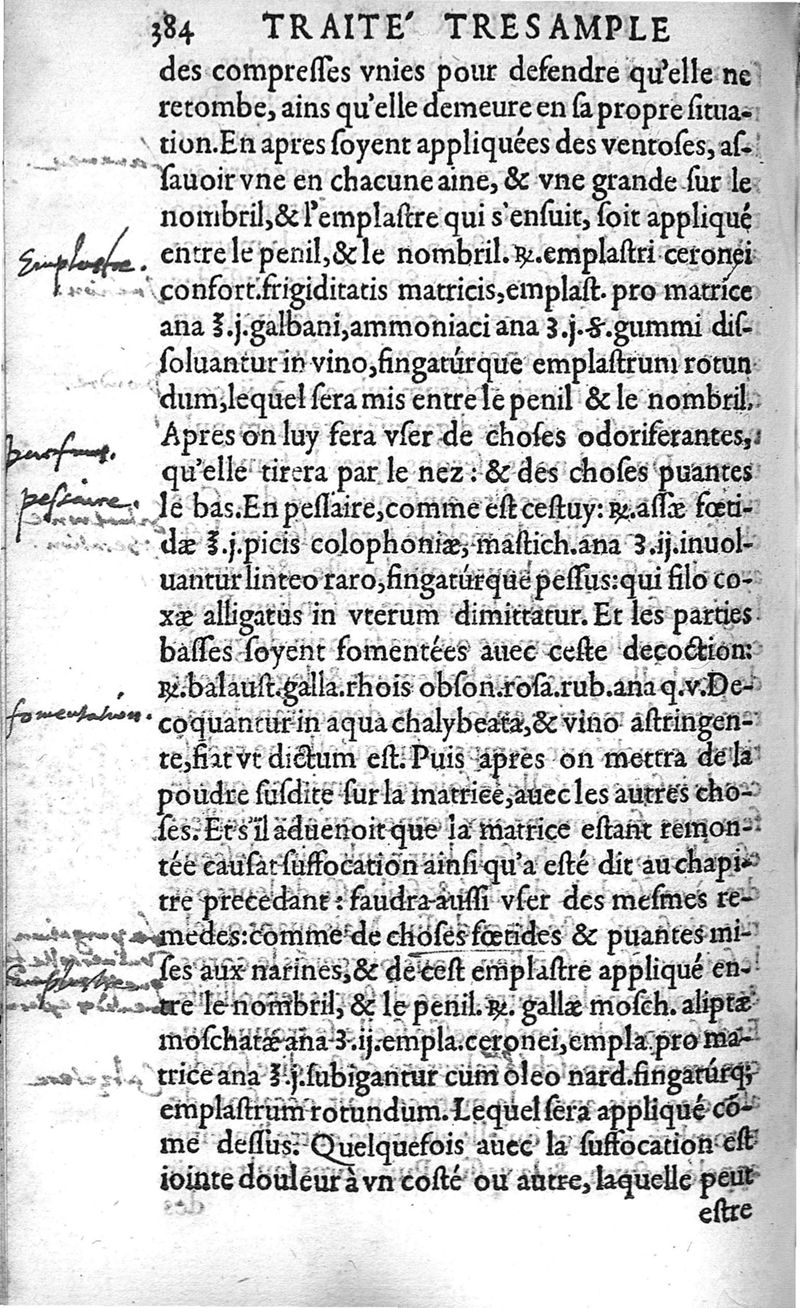 384 TRAITE' TRESAMPLE
des compreſſes vnies pour defendre qu'elle ne
retombe, ains qu'elle demeure en ſa propre ſitua-
tion. En apres ſoyent appliquées des ventoſes, aſ-
ſauoir vne en chacune aine, & vne grande ſur le
nombril, & l'emplaſtre qui s'enſuit, ſoit appliqué
Emplastre.
entre le penil, & le nombril. ℞. emplaſtri ceronei
confort. frigiditatis matricis, emplaſt. pro matrice
ana ℥.j. galbani, ammoniaci ana ʒ.j.ß. gummi diſ-
ſoluantur in vino, fingatúrque emplaſtrum rotun
dum, lequel ſera mis entre le penil & le nombril.
parfum.
Apres on luy fera vſer de choſes odoriferantes,
qu'elle tirera par le nez : & des choſes puantes
pessaire.
le bas. En peſſaire, comme eſt ceſtuy: ℞. aſſæ fœti-
dæ ℥.j. picis colophoniæ, maſtich. ana ʒ.ij. inuol-
uantur linteo raro, fingatúrque peſſus: qui filo co-
xæ alligatus in vterum dimittatur. Et les parties
baſſes ſoyent fomentées auec ceſte decoction:
℞. balauſt. galla. rhois obſon. roſa. rub. ana q.v. De-
fomentation.
coquantur in aqua chalybeata, & vino aſtringen-
te, fiat vt dictum eſt. Puis apres on mettra de la
poudre ſuſdite ſur la matrice, auec les autres cho-
ſes. Et s'il aduenoit que la matrice eſtant remon-
tée cauſat ſuffocation ainſi qu'a eſté dit au chapi-
tre precedant : faudra auſſi vſer des meſmes re-
medes: comme de choſes fœtides & puantes mi-
Emplastre
ſes aux narines, & de ceſt emplaſtre appliqué en-
tre le nombril, & le penil. ℞. gallæ moſch. aliptæ
moſchatæ ana ʒ.ij. empla. ceronei, empla. pro ma-
trice ana ℥.j. ſubigantur cum oleo nard. fingatúrq;
emplaſtrum rotundum. Lequel ſera appliqué cõ-
me deſſus. Quelquefois auec la ſuffocation eſt
iointe douleur à vn coſté ou autre, laquelle peut
eſtre